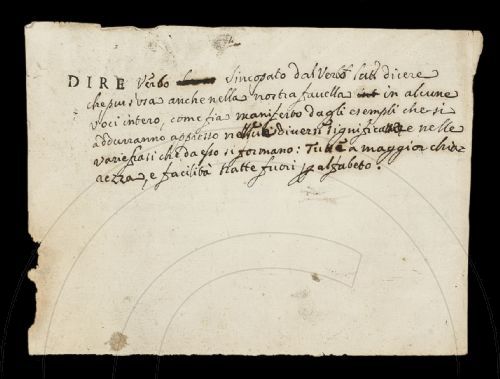 DIRE Verbo sincopato dal Verbo lat. dicere
che pur s'usa anche nella nostra favella in alcune
voci intero, come fia manifesto dagli esempli che si
addurranno appresso ne diversi significati e nelle
varie frasi che da esso si formano: Tutte a maggior chia-
rezza, e facilità tratte fuori p alfabeto.